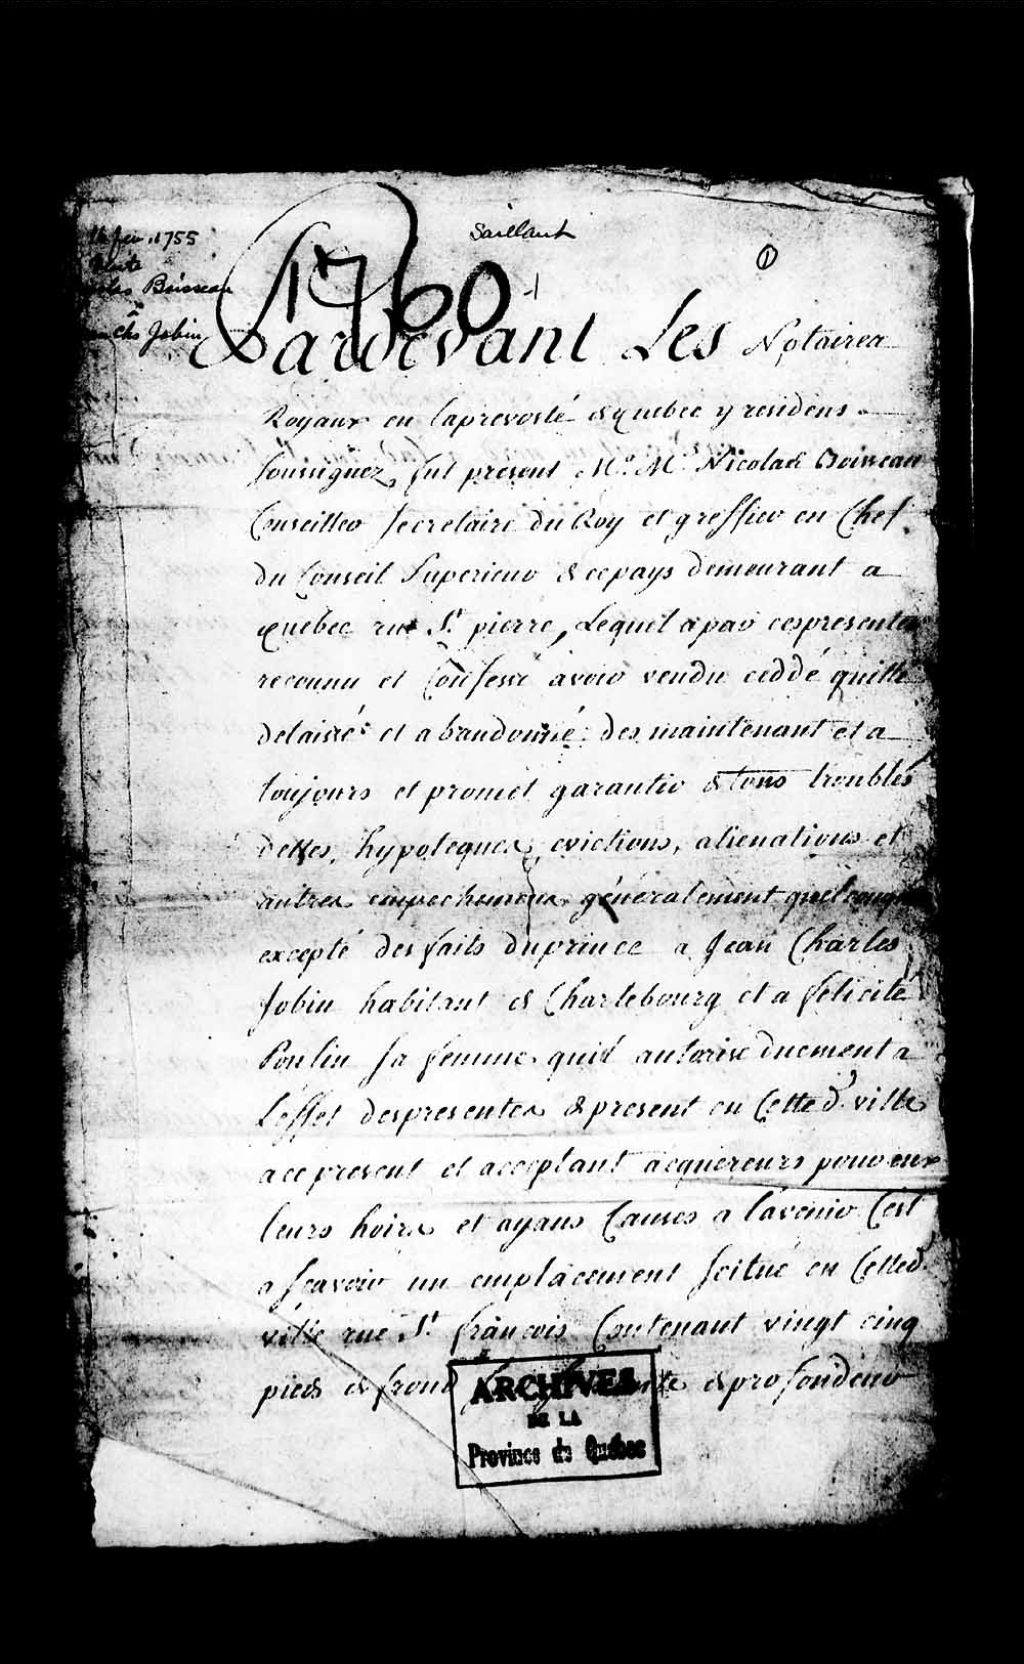 Saillant
①
fev. 1755
Vente
Boisseau
à
Chs Jobin
1760
Pardevant Les Notaires
Royaux en laprevosté de quebec y residens
soussignez, fut present Me. Me. Nicolas Boisseau
Conseiller secretaire du Roy et greffier en Chef
du Conseil Superieur de cepays demeurant a
quebec rue St. pierre, Lequel apar cespresentes
reconnu et Confessé avoir vendu ceddé quitté
delaissé et abandonné des maintenant et a
toujours et promet garantir de tous troubles
dettes, hypoteques, evictions, alienations et
autres empechemens généralement quelconques
excepté des faits du prince a Jean Charles
Jobin habitant de Charlebourg et a felicité
Poulin sa femme quil autorise duement a
L'effet despresentes de present en Cette d. ville
ace present et acceptant acquereurs pour eux
leurs hoirs et ayans Causes a l'avenir C'est
a scavoir un emplacement scitué en Cette d.
ville rue St. françois Contenant vingt cinq
pieds de front de profondeur
ARCHIVES
DE LA
Province de Québec